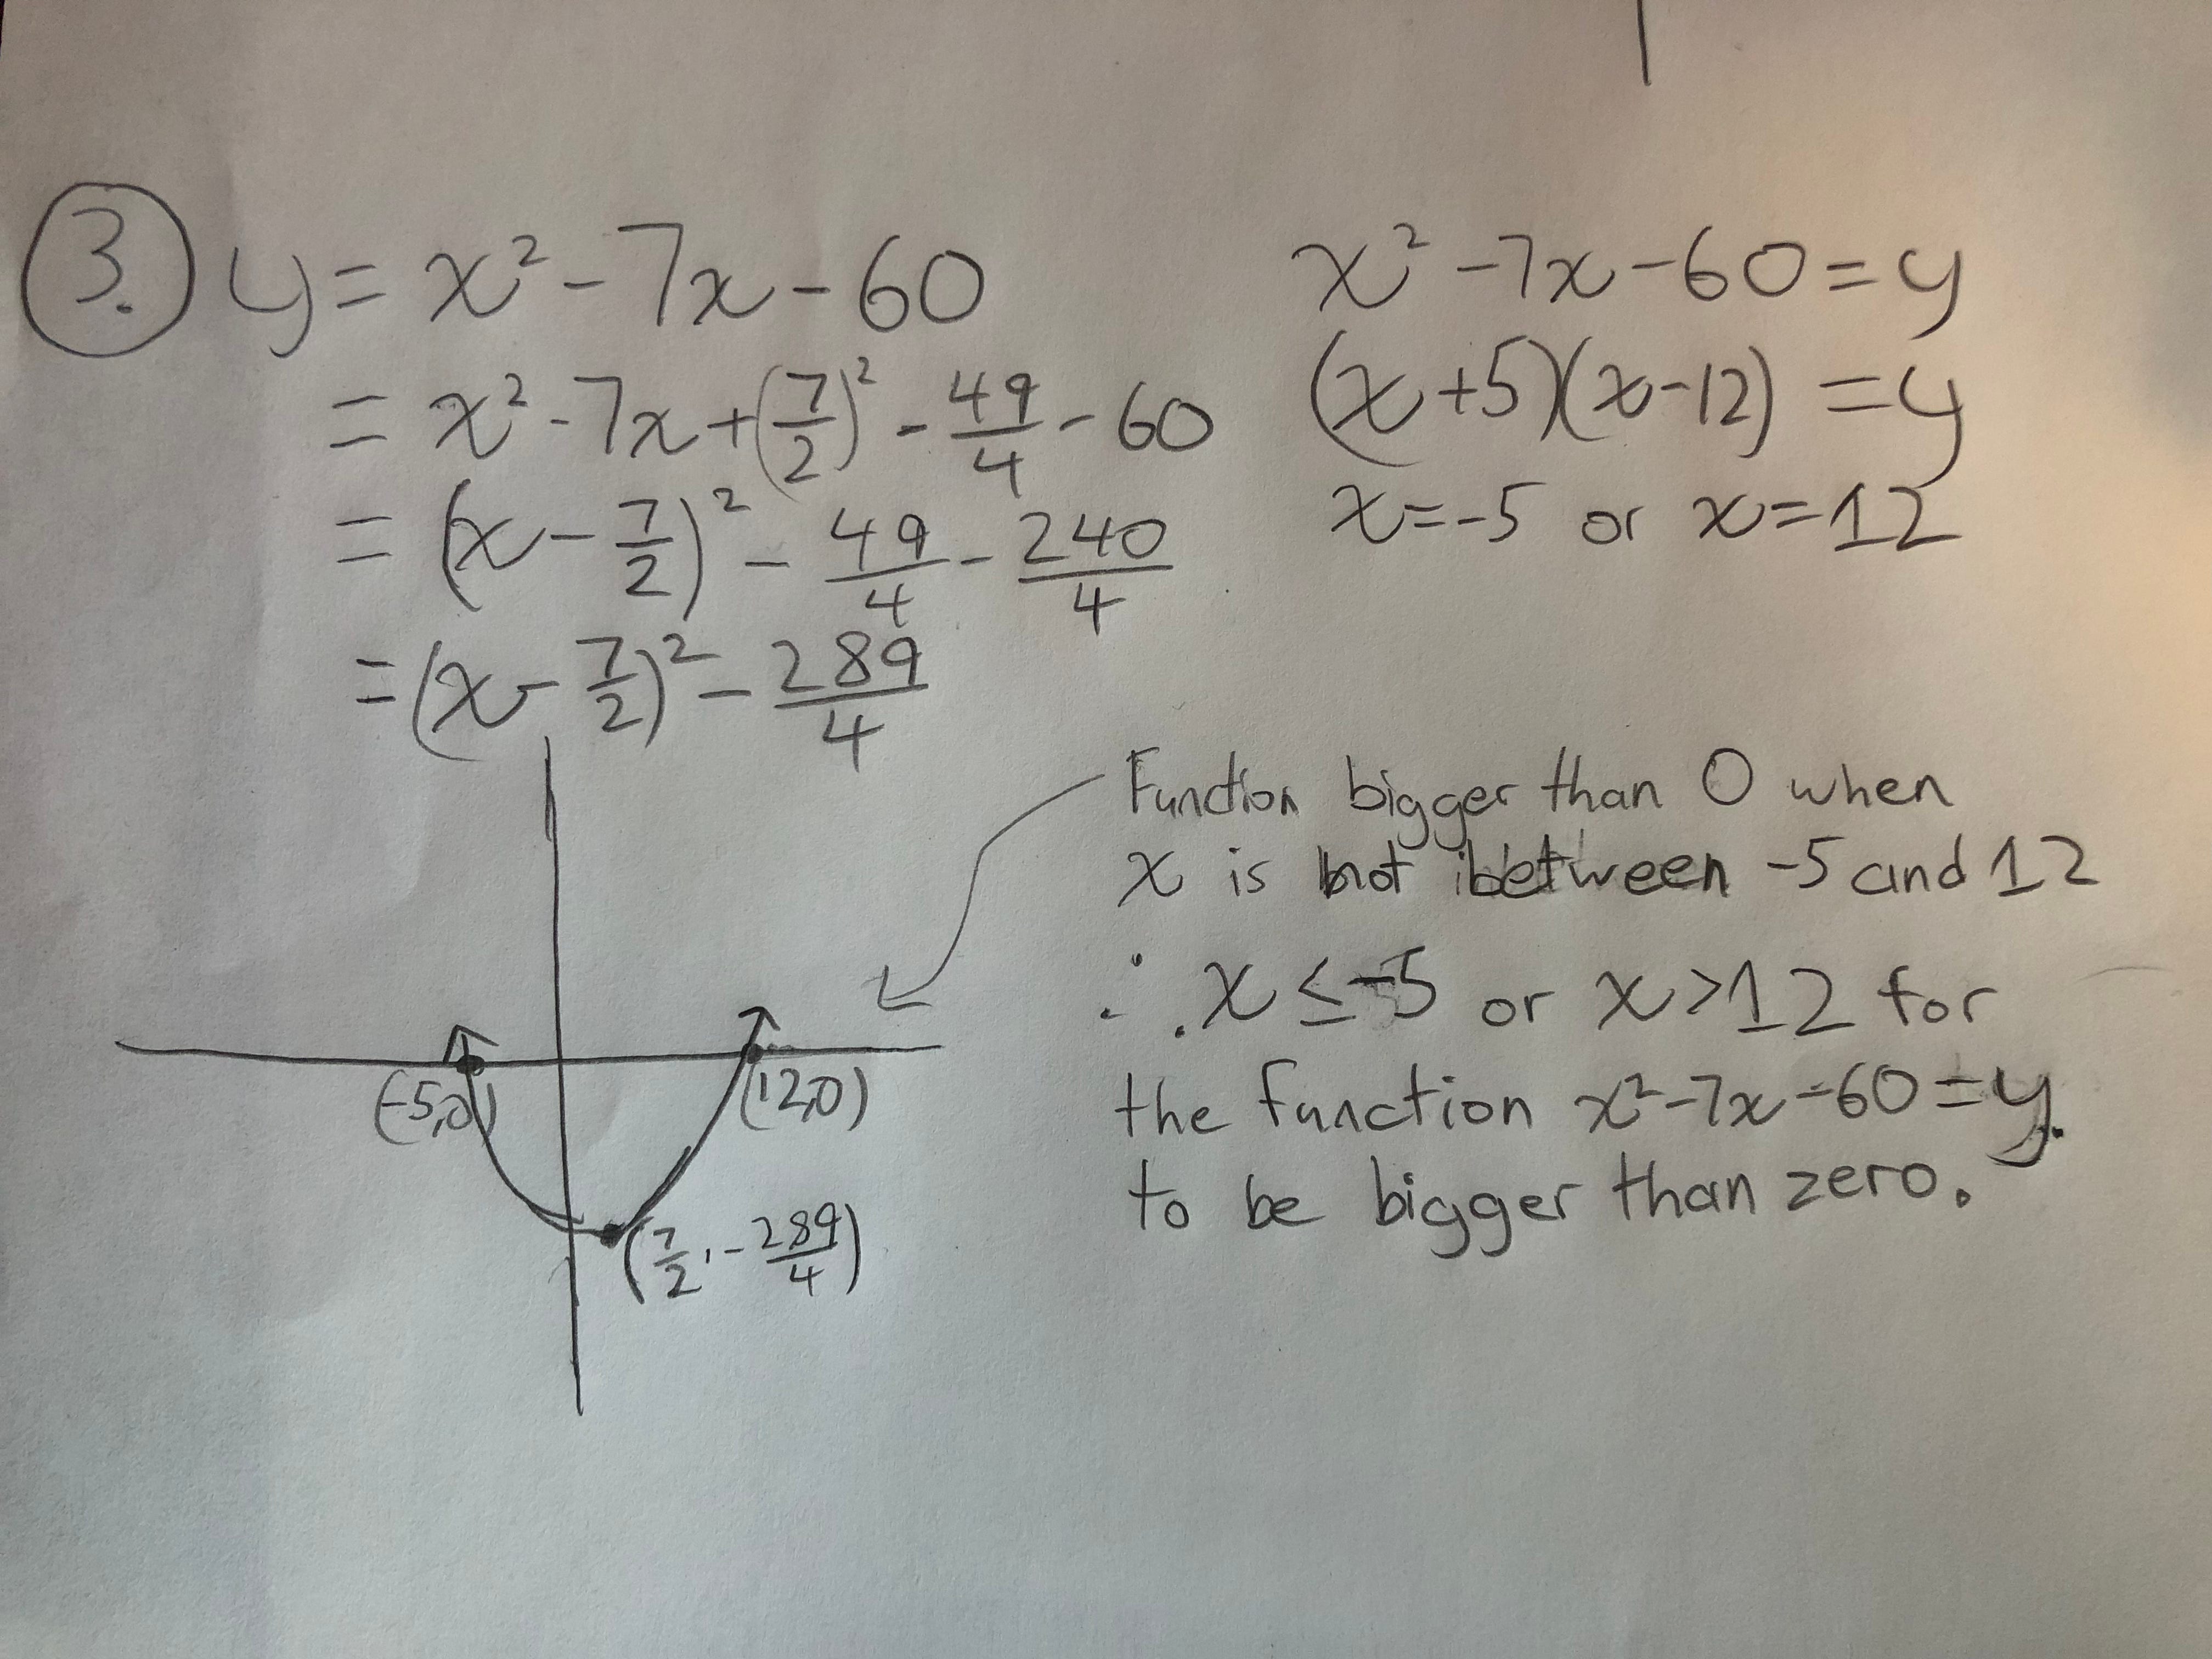 3. y = x² - 7x - 60
= x² - 7x + (7/2)² - 49/4 - 60
= (x - 7/2)² - 49/4 - 240/4
= (x - 7/2)² - 289/4
x² - 7x - 60 = y
(x + 5)(x - 12) = y
x = -5 or x = 12
(-5,0)
(12,0)
(7/2, -289/4)
Function bigger than 0 when
x is not between -5 and 12
∴ x ≤ -5 or x > 12 for
the function x² - 7x - 60 = y
to be bigger than zero.